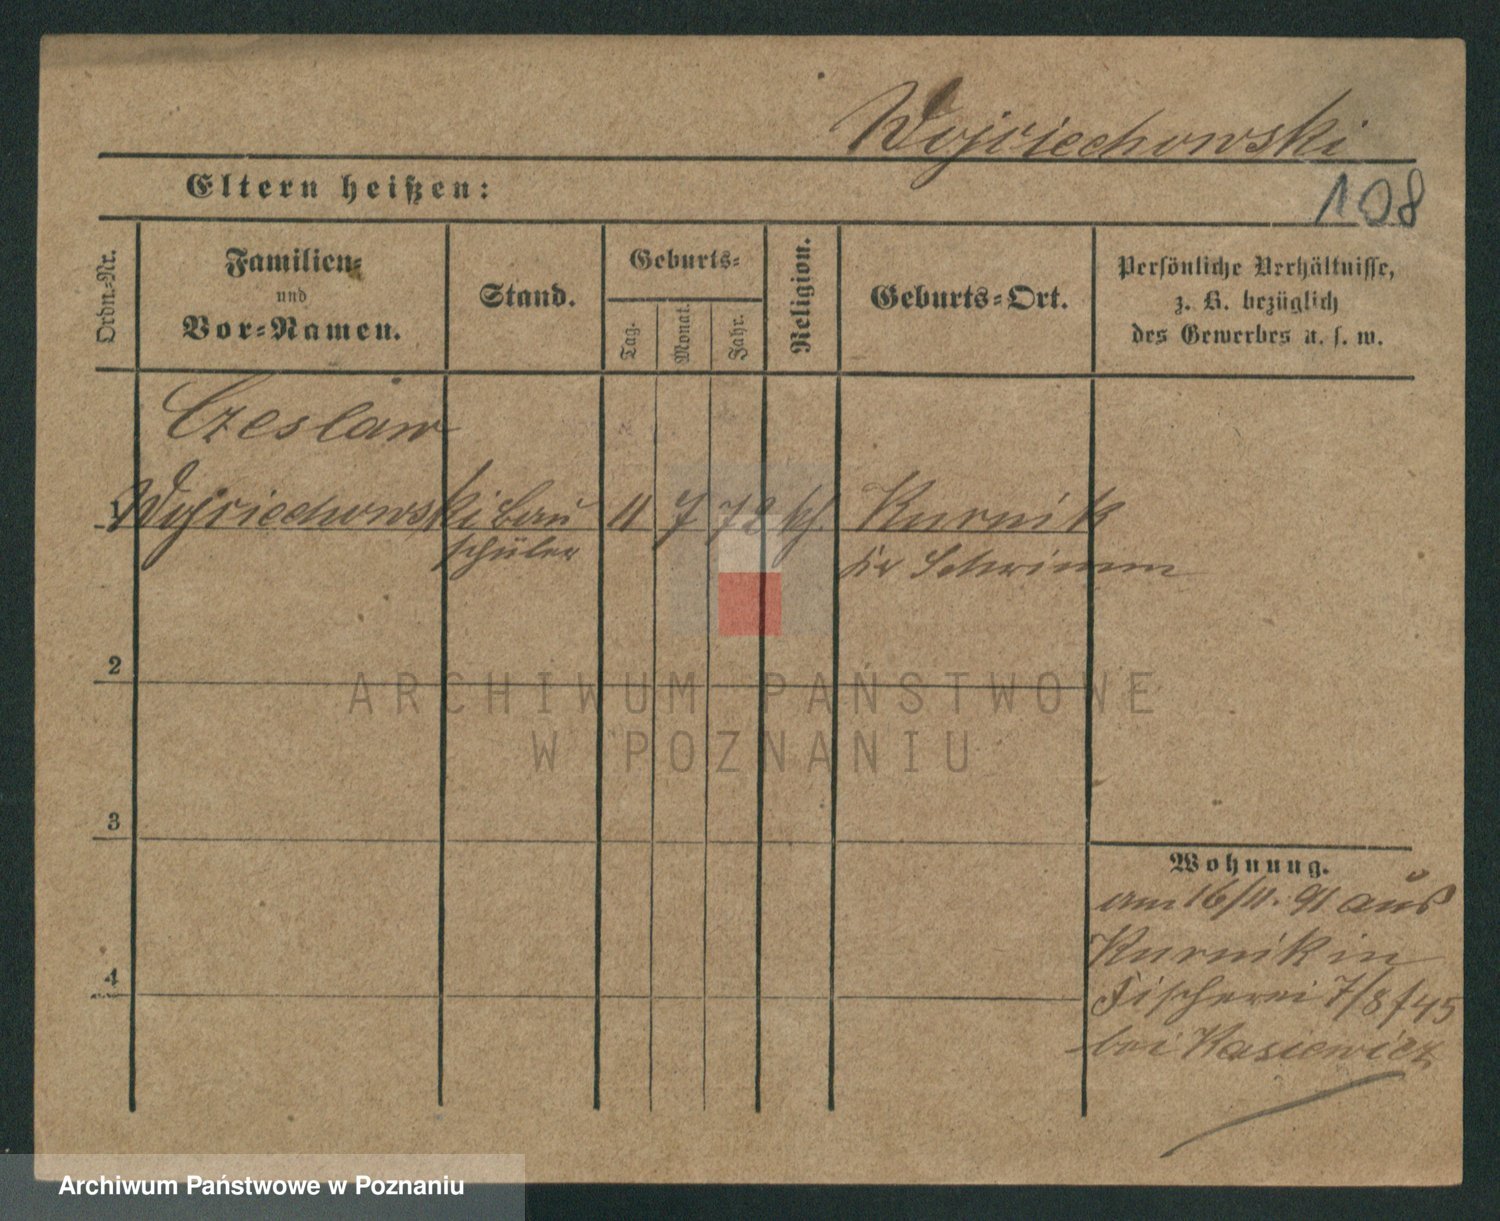 Wojciechowski
Eltern heißen:
108
Ordn.-Nr.
Familien-
und
Vor-Namen.
Stand.
Geburts-
Tag.
Monat.
Jahr.
Religion.
Geburts-Ort.
Persönliche Verhältnisse,
z. B. bezüglich
des Gewerbes u. s. w.
Czeslaw
1 Wojciechowski Bau 11 7 72 Kurnik
schüler Kr Schrimm
2
3
4
Wohnung.
am 16/11. 91 aus
Kurnik in
Fischerei 7/8 f 45
bei Kasiewicz
ARCHIWUM PAŃSTWOWE
W POZNANIU
Archiwum Państwowe w Poznaniu